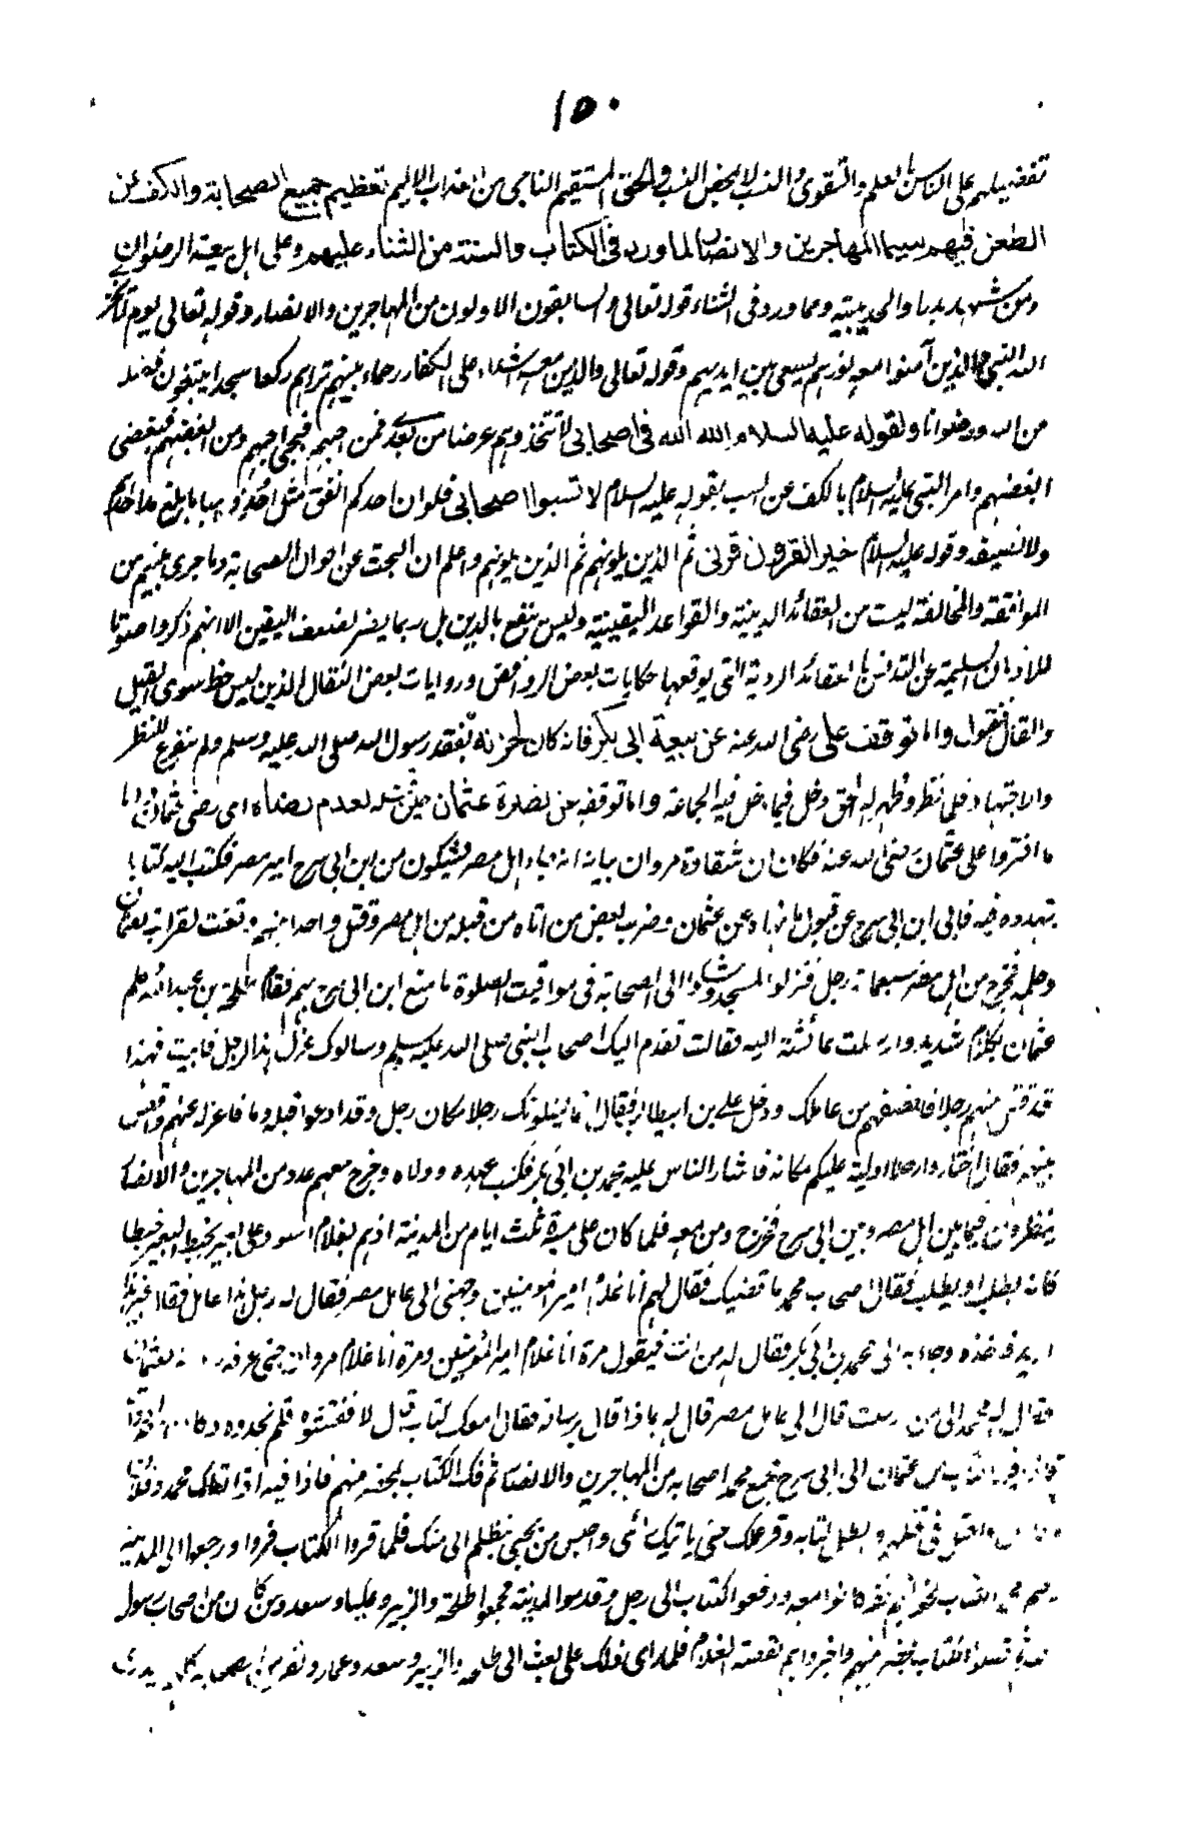 ١٥٠
تفضيلهم على الناس بالعلم والتقوى والنسب لا لمحض النسب والحق المستقيم الناجي من العذاب الاليم تعظيم جميع الصحابة والكف عن
الطعن فيهم سيما المهاجرين والانصار لما ورد في الكتاب والسنة من الثناء عليهم وعلى اهل بيعة الرضوان
ومن شهد بدرا والحديبية ومما ورد في الثناء قوله تعالى والسابقون الاولون من المهاجرين والانصار وقوله تعالى يوم لا يخزى
الله النبي والذين آمنوا معه نورهم يسعى بين ايديهم وقوله تعالى والذين معه اشداء على الكفار رحماء بينهم تراهم ركعا سجدا يبتغون فضلا
من الله ورضوانا ولقوله عليه السلام الله الله في اصحابي لا تتخذوهم عرضا من بعدي فمن احبهم فبحبي احبهم ومن ابغضهم فببغضي
ابغضهم وامر النبي عليه السلام بالكف عن السب بقوله عليه السلام لا تسبوا اصحابي فلو ان احدكم انفق مثل احد ذهبا ما بلغ مد احدهم
ولا نصيفه وقوله عليه السلام خير القرون قرني ثم الذين يلونهم ثم الذين يلونهم واعلم ان البحث عن احوال الصحابة وما جرى بينهم من
الموافقة والمخالفة ليست من العقائد الدينية والقواعد اليقينية وليس ينفع بالدين بل ربما يضر لضعف اليقين الا انهم ذكروا صونا
للاذهان السليمة عن التدنس بالعقائد الردية التي يوقعها حكايات بعض الروافض وروايات بعض النقال الذين ليس حظ سوى القيل
والقال فنقول واما توقف علي رضى الله عنه عن بيعة ابي بكر فانه كان لحزنه بفقد رسول الله صلى الله عليه وسلم ولم يتفرغ للنظر
والاجتهاد فلما نظر وظهر له الحق دخل فيما دخل فيه الجماعة واما توقفه عن نصرة عثمان لعدم رضاه اي رضى عثمان واما
ما افتروا على عثمان رضى الله عنه فكان ان شقاوة مروان بيانه انه جاء اهل مصر يشكون من ابن ابي سرح امير مصر فكتب اليه كتابا
يتهدده فيه فابى ابن ابي سرح عن قبول ما نهاه عن عثمان وضرب بعض من اتاه من قبله من اهل مصر وقتل واحدا منهم
فخرج من اهل مصر سبعمائة رجل فنزلوا المسجد وشكوا الى الصحابة في مواقيت الصلوة ما صنع ابن ابي سرح بهم فقام طلحة بن عبد الله فكلم
عثمان بكلام شديد وارسلت عائشة اليه فقالت تقدم اليك اصحاب النبي صلى الله عليه وسلم وسالوك عزل هذا الرجل فابيت فهذا
قد قتل منهم رجلا فانصفهم من عاملك ودخل علي بن ابيطالب فقال انما يسئلونك رجلا مكان رجل وقد ادعوا قبله دما فاعزله عنهم واقض
بينهم فقال اختاروا رجلا اوليه عليكم مكانه فاشار الناس عليه محمد بن ابي بكر فكتب عهده وولاه وخرج معهم عدد من المهاجرين والانصار
ينظرون فيما بين اهل مصر وبين ابي سرح فخرج ومن معه فلما كان على مسيرة ثلث ايام من المدينة اذ هم بغلام اسود على بعير يخبط البعير خبطا
كانه يطلب او يطلب فقال اصحاب محمد ما قضيتك فقال لهم انا غلام امير المؤمنين وجهني الى عامل مصر فقال له رجل هذا عامل فقال غير هذا
اريد فاخذه وجاء به الى محمد بن ابي بكر فقال له من انت فيقول مرة انا غلام امير المؤمنين ومرة انا غلام مروان حتى عرفه
فقال له محمد الى من ارسلت قال الى عامل مصر قال له بماذا قال برسالة فقال امعك كتاب قال لا ففتشوه فلم يجدوه
من عثمان الى ابي سرح فجمع محمد اصحابه من المهاجرين والانصار ثم فك الكتاب بمحضر منهم فاذا فيه اذا اتاك محمد وفلان
في قتلهم وابطل كتابه وقر عملك حتى ياتيك امري واحبس من يجئ يتظلم الى منك فلما قروا الكتاب فزعوا ورجعوا الى المدينة
كانوا معه ودفعوا الكتاب الى رجل وقدموا المدينة فجمعوا طلحة والزبير وعليا وسعدا ومن كان من اصحاب رسول
الكتاب بمحضر منهم واخبروهم بقصة الغلام فلما راى ذلك علي بعث الى طلحة والزبير وسعد وعمار ونفر